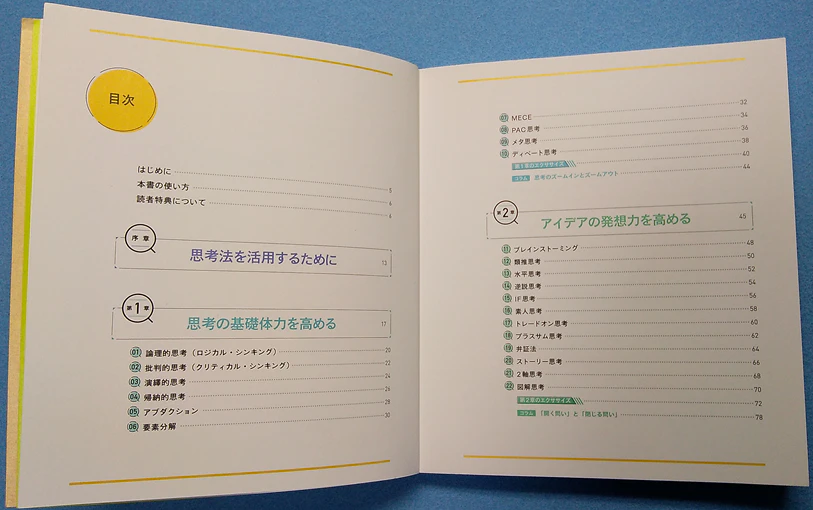 目次
はじめに 5
本書の使い方 6
読者特典について 6
序章
思考法を活用するために 13
第1章
思考の基礎体力を高める 17
01 論理的思考(ロジカル・シンキング) 20
02 批判的思考(クリティカル・シンキング) 22
03 演繹的思考 24
04 帰納的思考 26
05 アブダクション 28
06 要素分解 30
07 MECE 32
08 PAC思考 34
09 メタ思考 36
10 ディベート思考 38
第1章のエクササイズ 40
コラム 思考のズームインとズームアウト 44
第2章
アイデアの発想力を高める 45
11 ブレインストーミング 48
12 類推思考 50
13 水平思考 52
14 逆説思考 54
15 IF思考 56
16 素人思考 58
17 トレードオン思考 60
18 プラスサム思考 62
19 弁証法 64
20 ストーリー思考 66
21 2軸思考 68
22 図解思考 70
第2章のエクササイズ 72
コラム 「開く問い」と「閉じる問い」 78